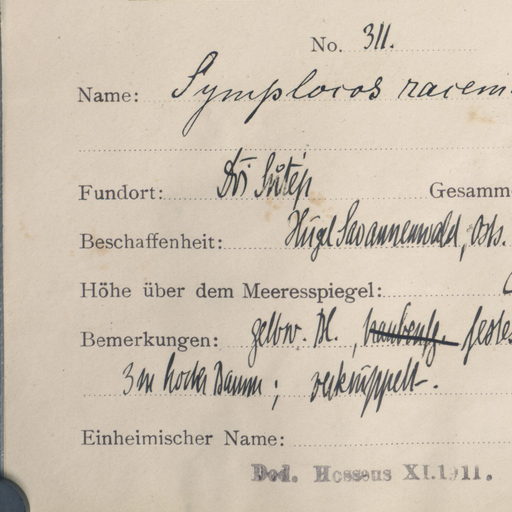 No. 311.
Name: Symplocos racem
Fundort: Doi Sutép Gesamme
Beschaffenheit: Hügel Savannenwald,
Höhe über dem Meeresspiegel:
Bemerkungen: gelbw. Bl., festes
3 m hoher Baum; verkrüppelt.
Einheimischer Name:
Ded. Hosseus XI.1911.